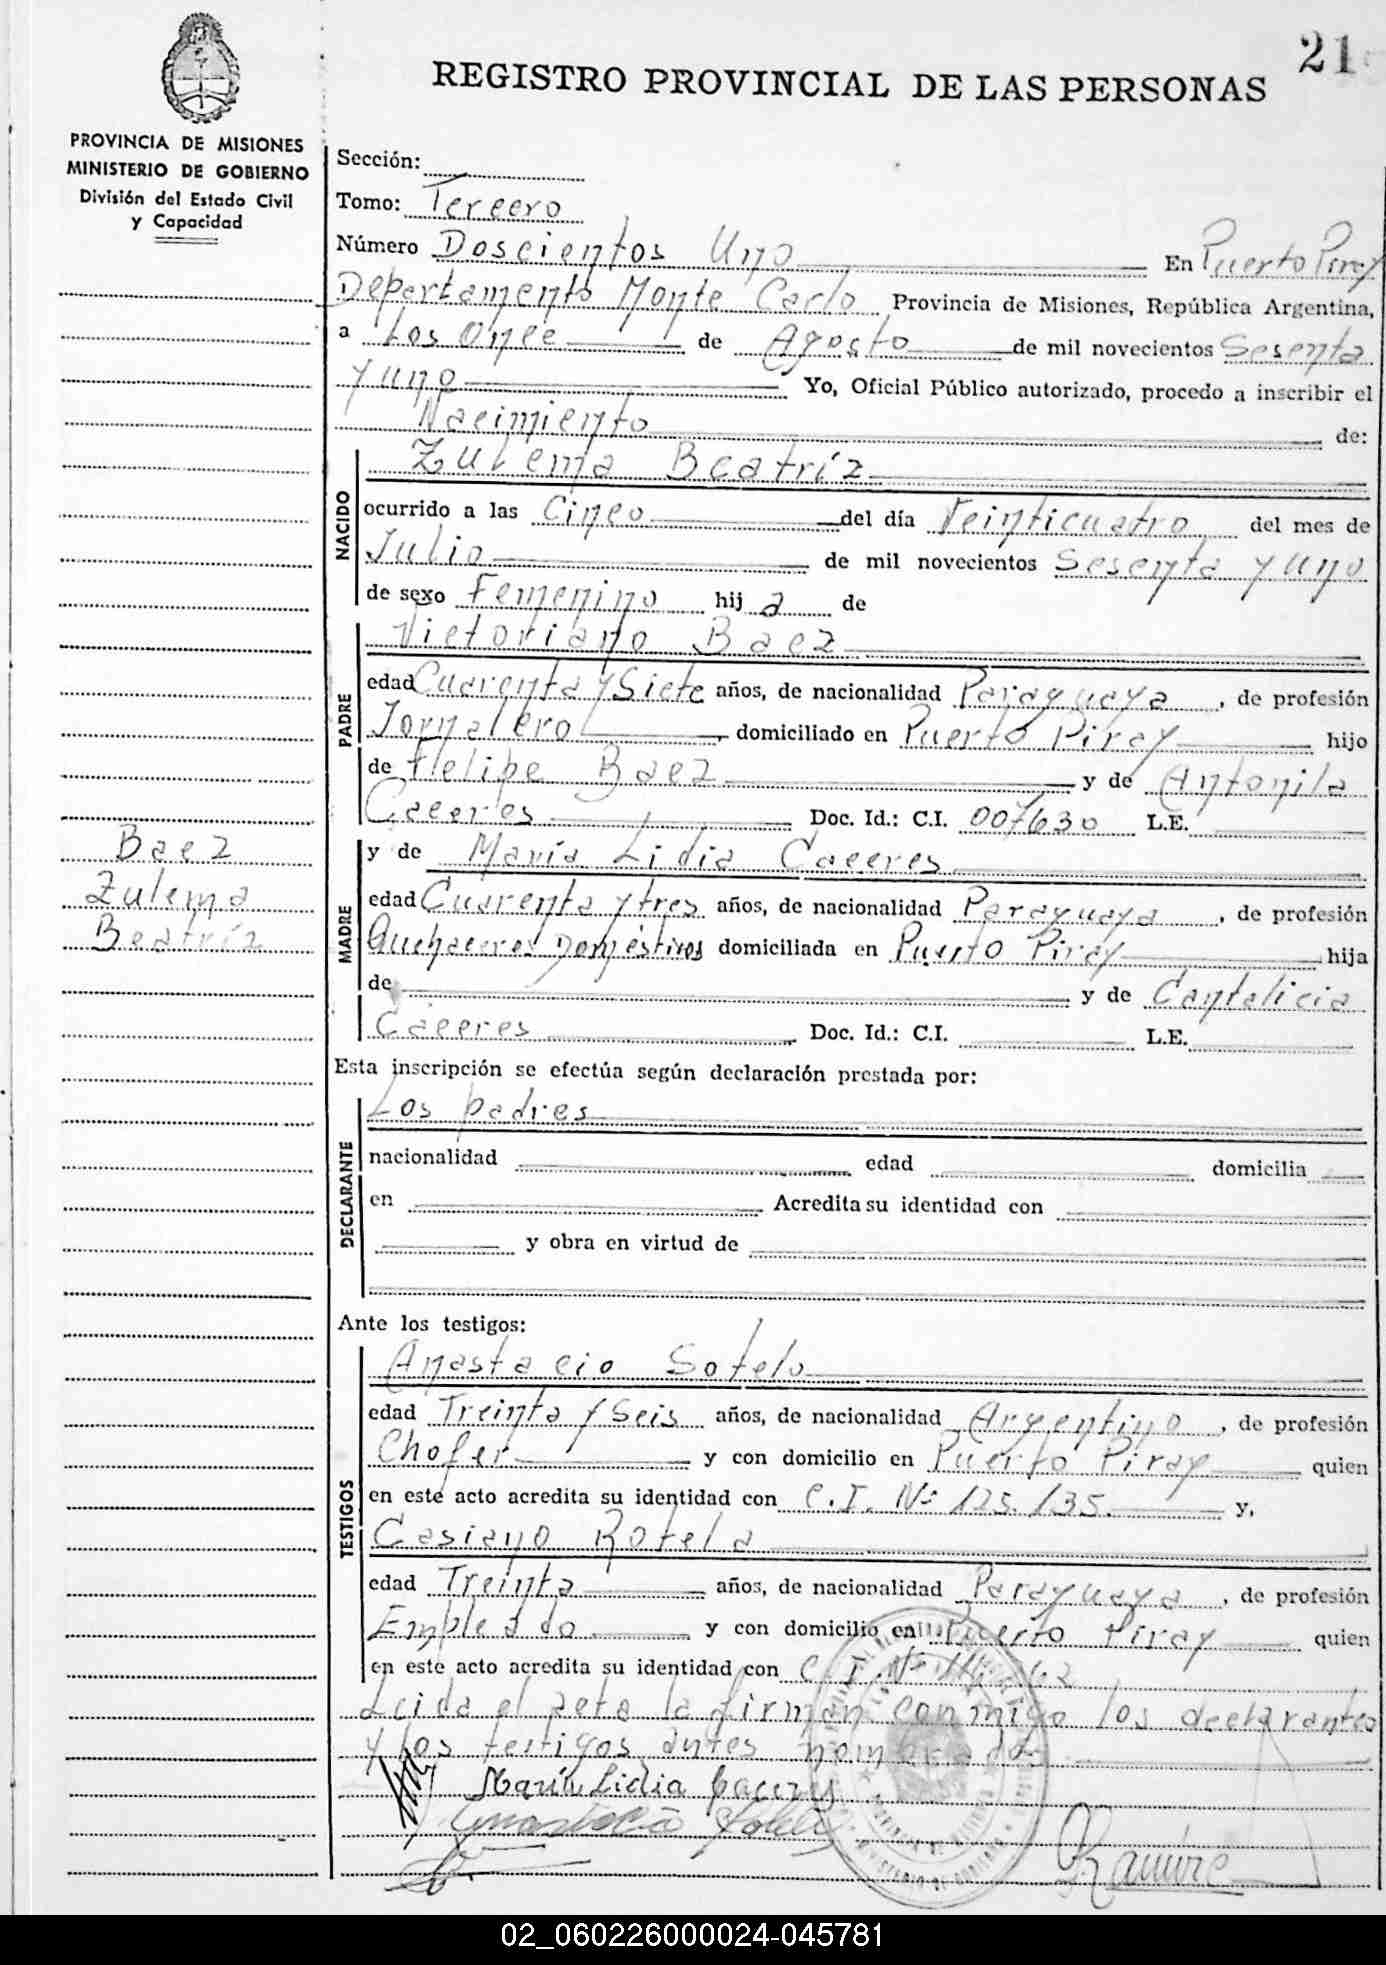 21
REGISTRO PROVINCIAL DE LAS PERSONAS
PROVINCIA DE MISIONES
MINISTERIO DE GOBIERNO
División del Estado Civil
y Capacidad
Sección:
Tomo: Tercero
Número Doscientos Uno En Puerto Piray
Departamento Monte Carlo Provincia de Misiones, República Argentina,
a Los Once de Agosto de mil novecientos Sesenta
y uno Yo, Oficial Público autorizado, procedo a inscribir el
Nacimiento de:
NACIDO
Zulema Beatríz
ocurrido a las Cinco del día Veinticuatro del mes de
Julio de mil novecientos Sesenta y uno
de sexo Femenino hij a de
PADRE
Victoriano Baez
edad Cuarenta y Siete años, de nacionalidad Paraguaya, de profesión
Jornalero, domiciliado en Puerto Piray hijo
de Felipe Baez y de Antonila
Caceres Doc. Id.: C.I. 007630 L.E.
Baez
Zulema
Beatríz
MADRE
y de María Lidia Caceres
edad Cuarenta y tres años, de nacionalidad Paraguaya, de profesión
Quehaceres Domésticos domiciliada en Puerto Piray hija
de y de Cantalicia
Caceres Doc. Id.: C.I. L.E.
Esta inscripción se efectúa según declaración prestada por:
DECLARANTE
Los padres
nacionalidad edad domicilia
en Acredita su identidad con
y obra en virtud de
Ante los testigos:
TESTIGOS
Anastacio Sotelo
edad Treinta y Seis años, de nacionalidad Argentino, de profesión
Chofer y con domicilio en Puerto Piray quien
en este acto acredita su identidad con C.I. Nº 125.135. y,
Casiano Rotela
edad Treinta años, de nacionalidad Paraguaya, de profesión
Empleado y con domicilio en Puerto Piray quien
en este acto acredita su identidad con C.I. Nº
Leida el acta la firman conmigo los declarantes
y los testigos antes nombrados
María Lidia Caceres
02_060226000024-045781